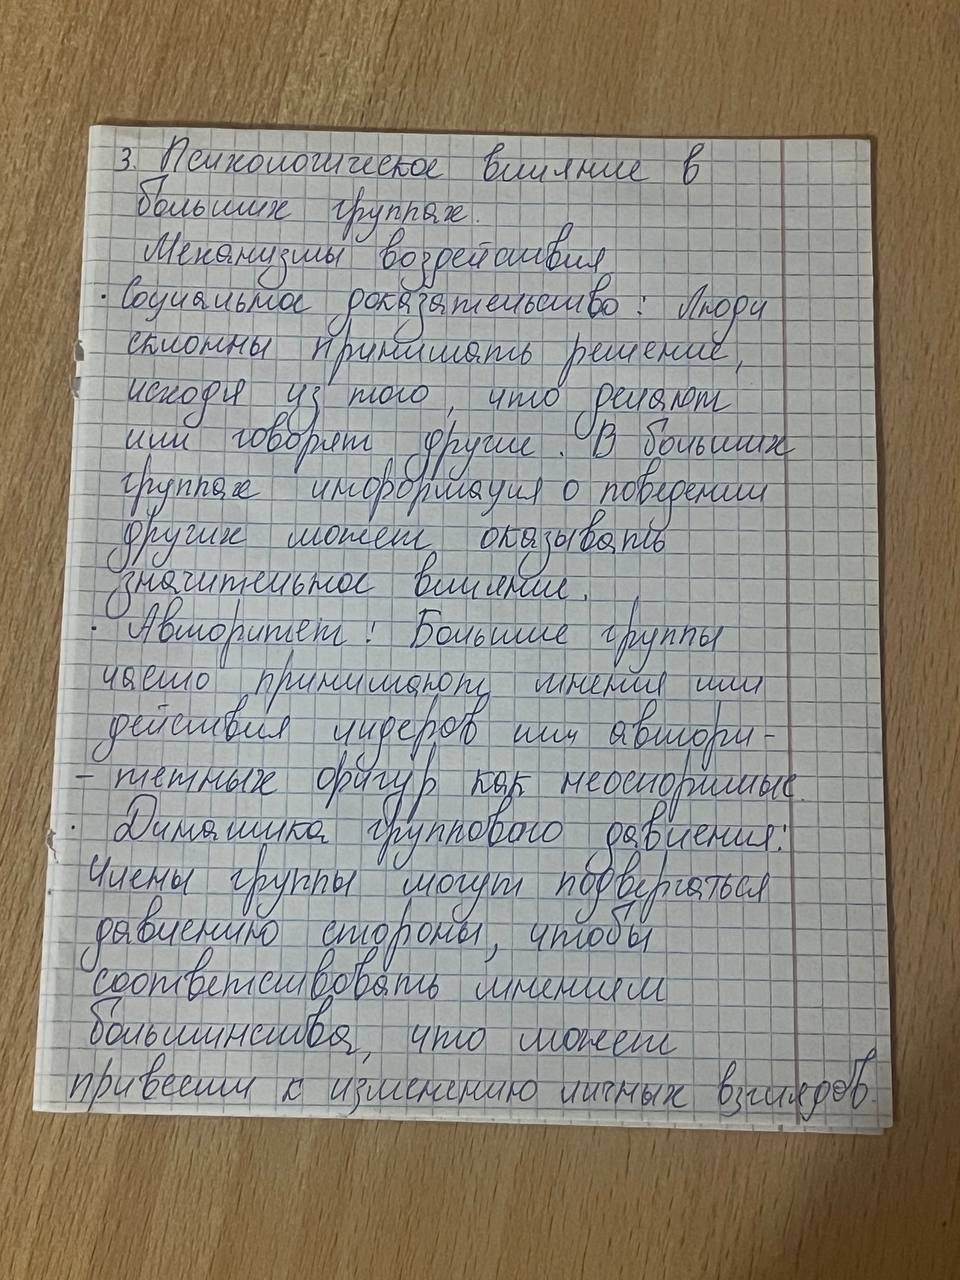 3. Психологическое влияние в
больших группах.
Механизмы воздействия
· Социальное доказательство: Люди
склонны принимать решение,
исходя из того, что делают
или говорят другие. В больших
группах информация о поведении
других может оказывать
значительное влияние.
· Авторитет: Большие группы
часто принимают мнения или
действия лидеров или автори-
- тетных фигур как неоспоримые.
· Динамика группового давления:
Члены группы могут подвергаться
давлению стороны, чтобы
соответствовать мнениям
большинства, что может
привести к изменению личных взглядов.